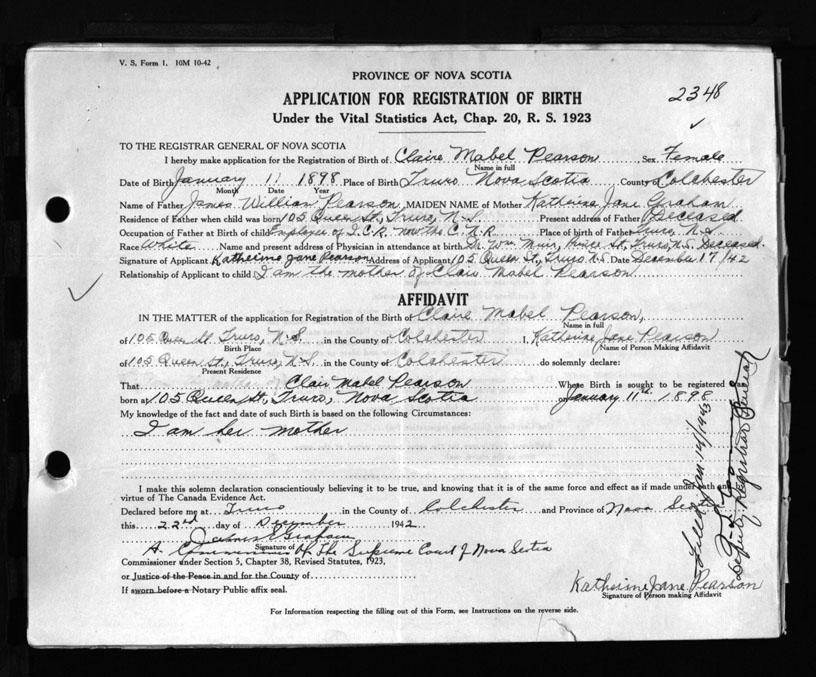 V. S. Form 1. 10M 10-42
PROVINCE OF NOVA SCOTIA
2348
APPLICATION FOR REGISTRATION OF BIRTH
Under the Vital Statistics Act, Chap. 20, R. S. 1923
TO THE REGISTRAR GENERAL OF NOVA SCOTIA
I hereby make application for the Registration of Birth of Claire Mabel Pearson Sex Female
Name in full
Date of Birth January 11 1898 Place of Birth Truro Nova Scotia County of Colchester
Month Date Year
Name of Father James William Pearson, MAIDEN NAME of Mother Katherine Jane Graham
Residence of Father when child was born 105 Queen St, Truro, N.S. Present address of Father Deceased
Occupation of Father at Birth of child Employee of I.C.R. now the C.N.R Place of birth of Father Truro, N.S
Race White Name and present address of Physician in attendance at birth Dr. Wm. Muir, Prince St, Truro, N.S. Deceased.
Signature of Applicant Katherine Jane Pearson Address of Applicant 105 Queen St, Truro N.S. Date December 17/42
Relationship of Applicant to child I am the mother of Clair Mabel Pearson
AFFIDAVIT
IN THE MATTER of the application for Registration of the Birth of Claire Mabel Pearson,
Name in full
of 105 Queen St Truro, N.S. in the County of Colchester I, Katherine Jane Pearson
Birth Place Name of Person Making Affidavit
of 105 Queen St, Truro, N.S. in the County of Colchester do solemnly declare:
Present Residence
That Clair Mabel Pearson Whose Birth is sought to be registered
born at 105 Queen St, Truro, Nova Scotia on January 11th 1898
My knowledge of the fact and date of such Birth is based on the following Circumstances:
I am her mother
I make this solemn declaration conscientiously believing it to be true, and knowing that it is of the same force and effect as if made under oath and
virtue of The Canada Evidence Act.
Declared before me at Truro in the County of Colchester and Province of Nova Scotia
this 22nd day of December 1942
Graham
Signature of
A Commissioner of the Supreme Court of Nova Scotia
Commissioner under Section 5, Chapter 38, Revised Statutes, 1923,
or Justice of the Peace in and for the County of
If sworn before a Notary Public affix seal.
Katherine Jane Pearson
Signature of Person making Affidavit
For Information respecting the filling out of this Form, see Instructions on the reverse side.
Filed Jan 14/1943
Deputy Registrar General